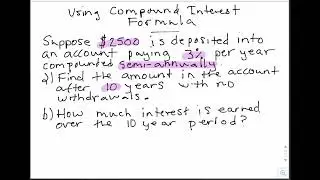 Using Compound Interest
Formula
Suppose $2500 is deposited into
an account paying 3% per year
compounded semi-annually
a) Find the amount in the account
after 10 years with no
withdrawals.
b) How much interest is earned
over the 10 year period?